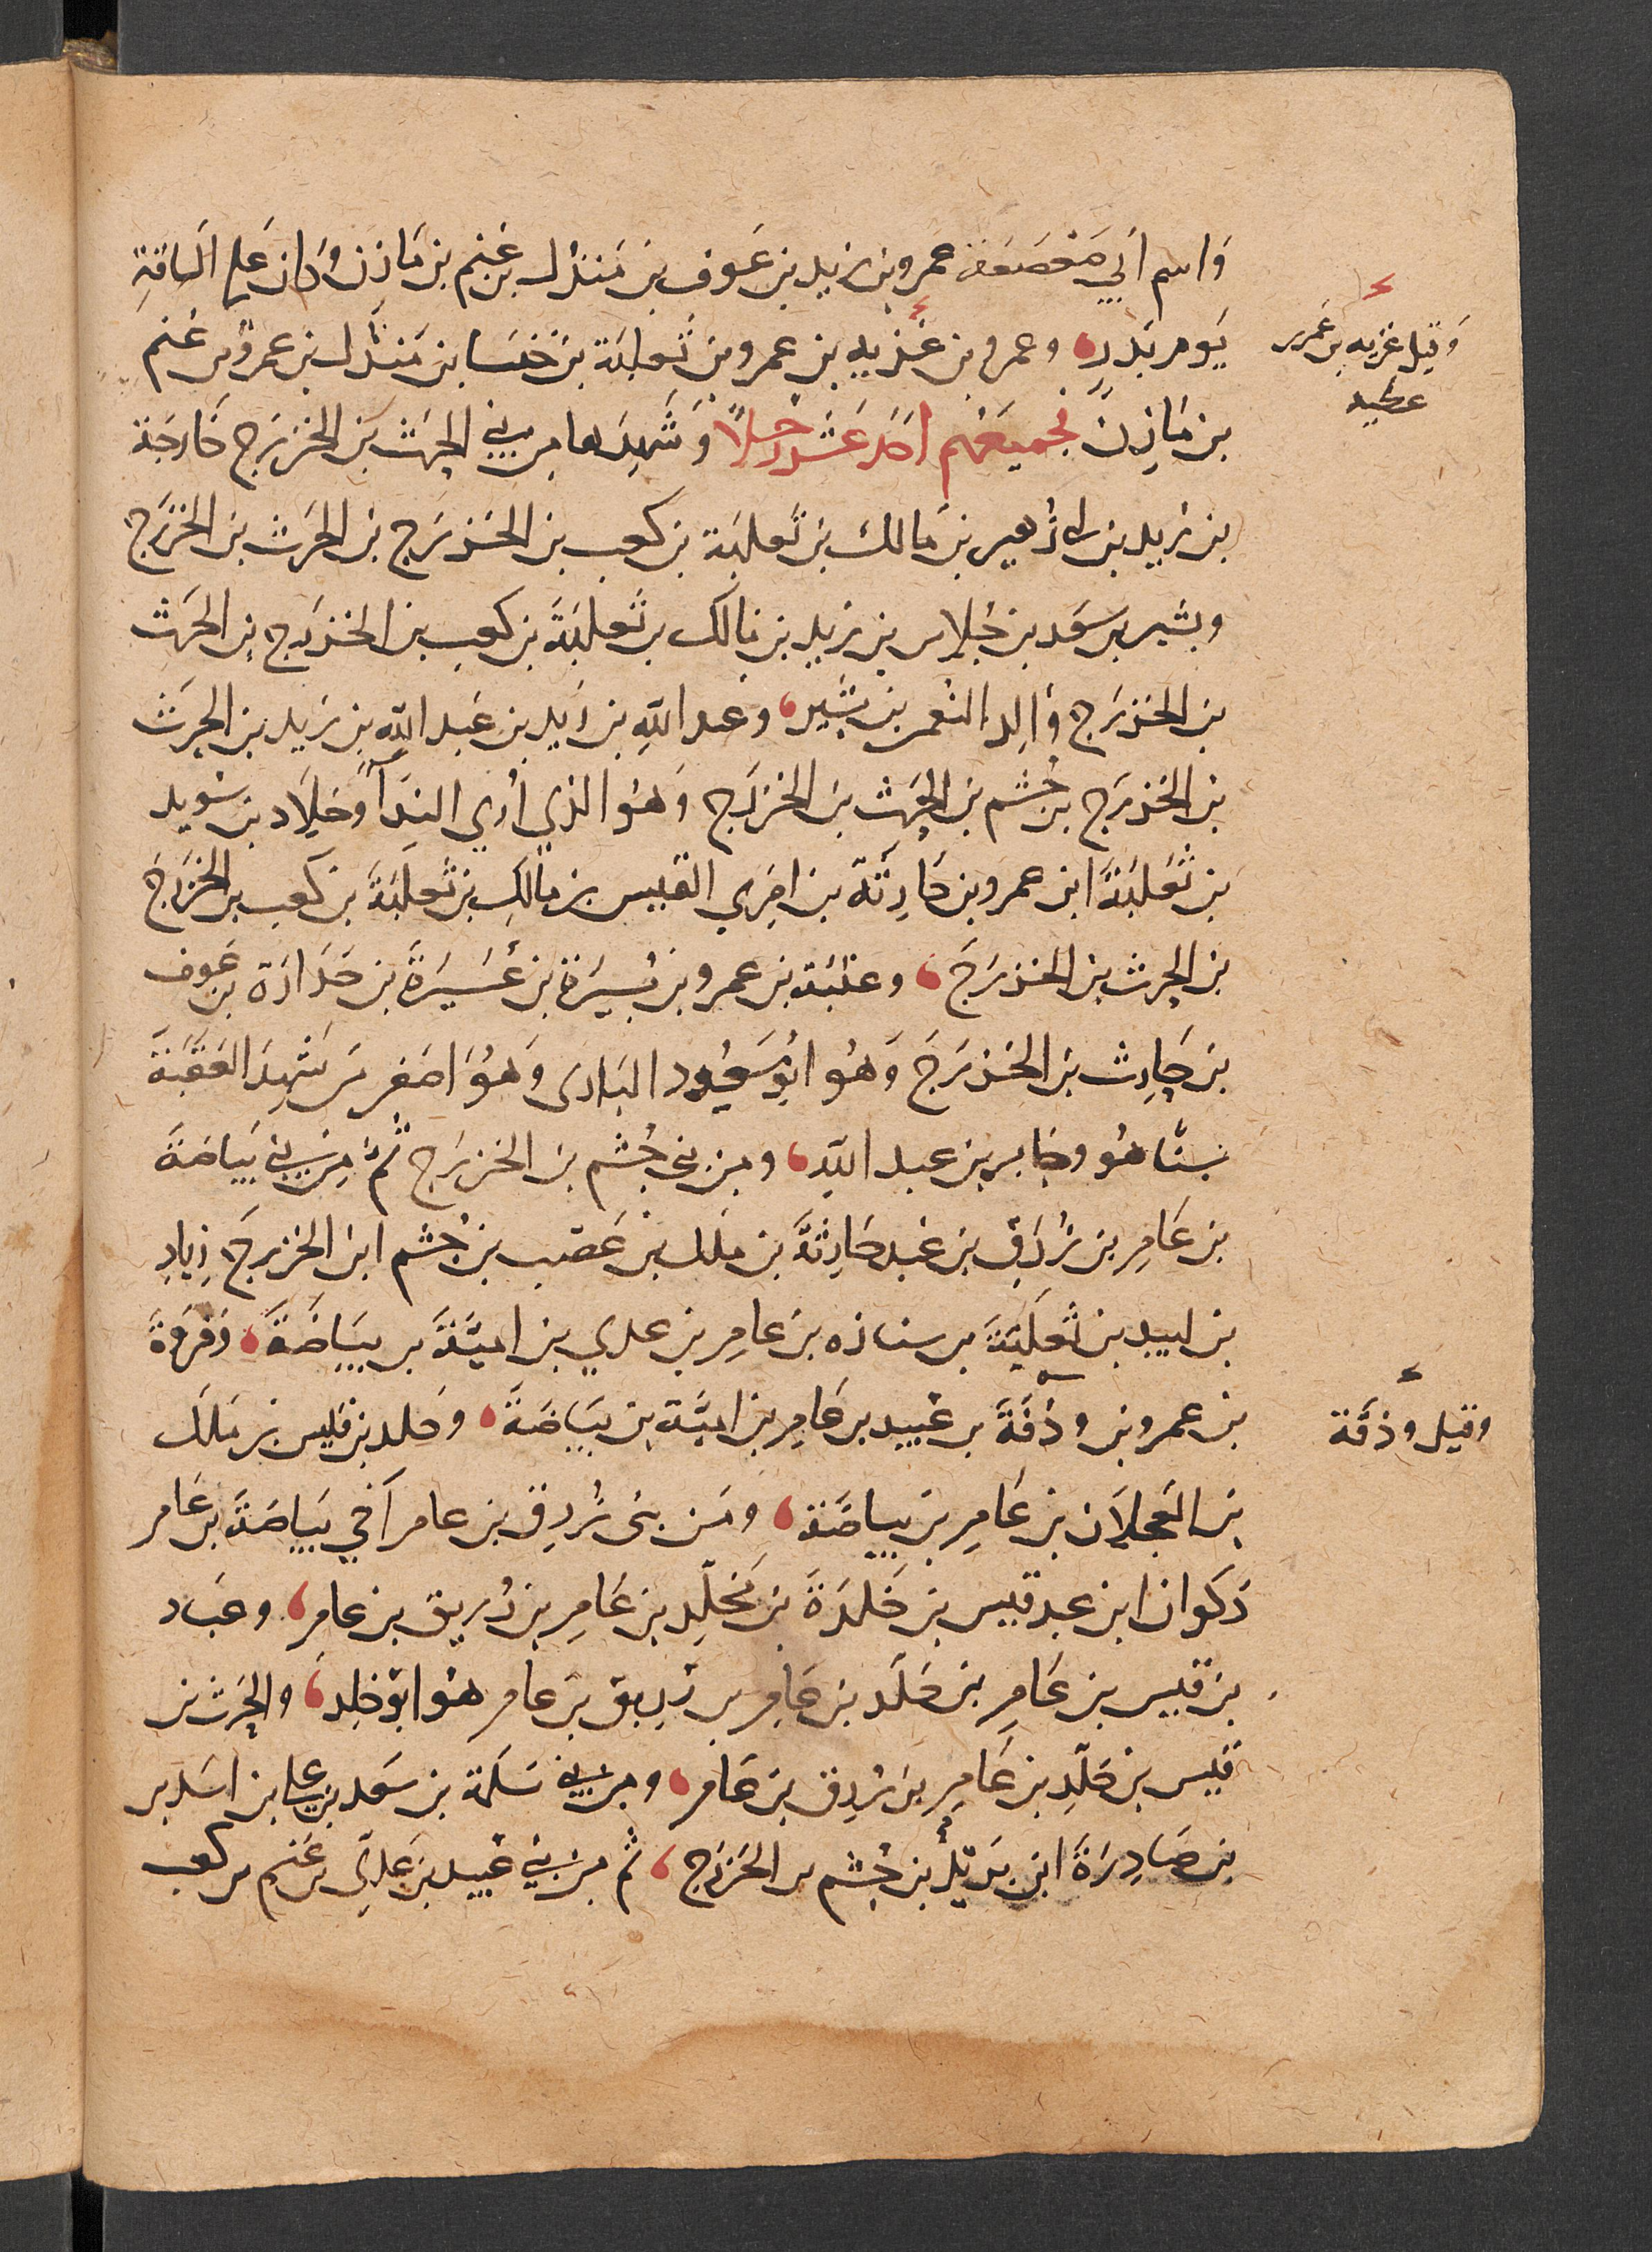 وَاسم اَبي صَعْصَعَة عمرو بن زيد بن عَوف بن مَنْدُل بن غنم بن مَازن وكان عَلى السَاقةِ
يَوم بَدرٍ، وعمرو بن غزيه بن عمرو بن ثَعلبَة بن خنسَا بن مَنْدُل بن عمرو بن غنم
بن مَازِن فجميعهم اَحَد عَشر رَجلاً وَشَهِدَها من بني الحرث بن الخزرَج خَارجَة
بن زيد بن ابي زُهير بن مَالك بن ثَعلبَة بن كعب بن الخزرَج بن الحرَث بن الخزرَج
وبشير بن سَعد بن جُلاس بن زيد بن مَالك بن ثَعلبَة بن كعب بن الخزرَج بن الحرَث
بن الخزرَج وَالِد النعمن بن بَشير، وعبد اللهِ بن زَيد بن عَبد اللهِ بن زيد بن الحرث
بن الخزرَج بن جُشم بن الحرث بن الخزرَج وَهُوَ الذي أُري النِدَآً وخلاد بن سُويد
بن ثَعلبَةَ ابن عمرو بن حَارِثَة بن امرِي القيس بن مالكِ بن ثَعلبَةَ بن كعب بن الخزرَج
بن الحرث بن الخزرَج، وعقبَة بن عمرو بن يُسيرَة بن عُسَيرَةَ بن خدَارَة بن عَوف
بن حَارِث بن الخزرَج وَهُو ابُو مَسعُود البَادرى وَهُوَ اصغر من شَهِدَ العَقَبَةَ
سِنًّا هُو وجَابر بن عبد اللهِ، ومن بنى جُشم بن الخزرَج ثمَّ مِن بني بَيَاضَةَ
بن عَامِر بن زُرَيق بن عَبد حَارِثَةَ بن ملك بن غَضب بن جُشم ابن الخزرجَ زيادِ
بن لبيد بن ثَعلبَةَ بن سنان بن عَامِر بن عدي بن اميَّةَ بن بيَاضَةَ، وَفروَةَ
بن عمرو بن وذفَةَ بن عُبيد بن عَامِر بن اميَّة بن بيَاضَةَ، وَخلد بن قيس بن مَلك
بن العجلاَن بن عَامِر بن بيَاضَة، ومن بنى زُريق بن عامر اَخي بيَاضَةَ بن عَامر
ذكوان ابن عبد قيس بن خَلدَةَ بن مخلّد بن عَامِر بن زُريق بن عامر، وعباد
بن قيس بن عَامر بن خلَد بن عَامِر بن زُريق بن عامر هُو ابُو خلد، والحرَث بن
قيس بن خلَدِ بن عَامِر بن زُريق بن عَامر، ومن بني سَلمة بن سَعد بن علي بن اسَد بن
بن صَادِرَةَ ابن يَزيد بن جُشم بن الخزرَج، ثم من بني عُبيد بن عَدِي بن غنم بن كعب
وَقيل غزيه بن عمرو
عطيه
وقيل وذَفة